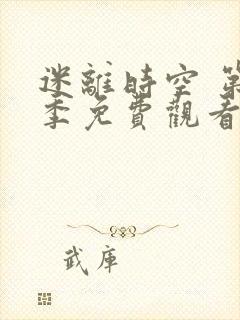 迷離時空 第
季免費觀看
武庫